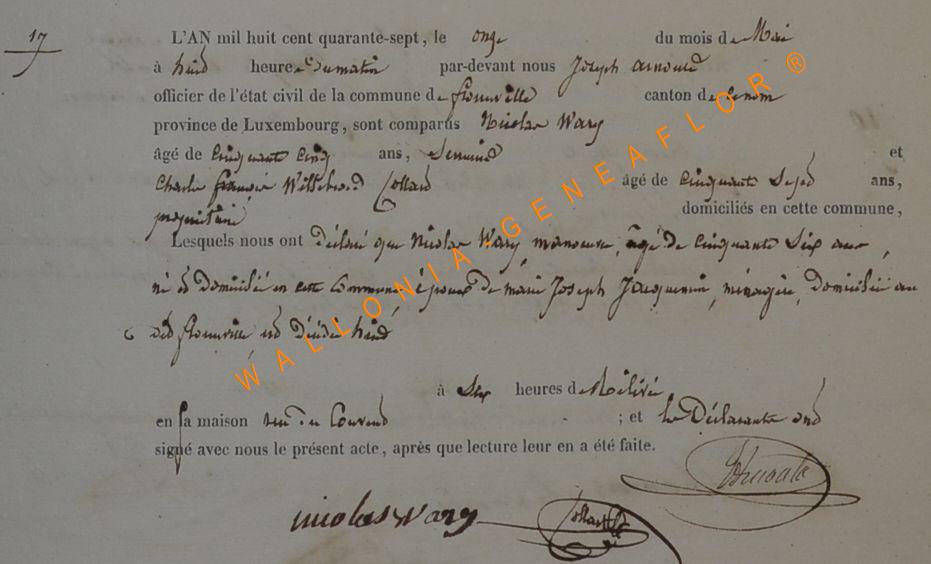 17
L'AN mil huit cent quarante-sept, le onze du mois de Mai
à huit heures du matin par-devant nous Joseph arnould
officier de l'état civil de la commune de florenville canton de
province de Luxembourg, sont comparus Nicolas Wary
âgé de cinquante cinq ans, et
Charles françois Willebrord Collard âgé de cinquante Sept ans,
propriétaire domiciliés en cette commune,
Lesquels nous ont déclaré que Nicolas Wary, manoeuvre, âgé de cinquante Six ans,
né et domicilié en cette Commune, époux de marie Joseph Jacquemin, ménagère, domiciliée au
dit florenville est décédé hier
à Six heures de Rélevée
en sa maison rue du Couvent ; et les Déclarants ont
signé avec nous le présent acte, après que lecture leur en a été faite.
nicolas wary Collard
WALLONIA-GENEAFLOR ®